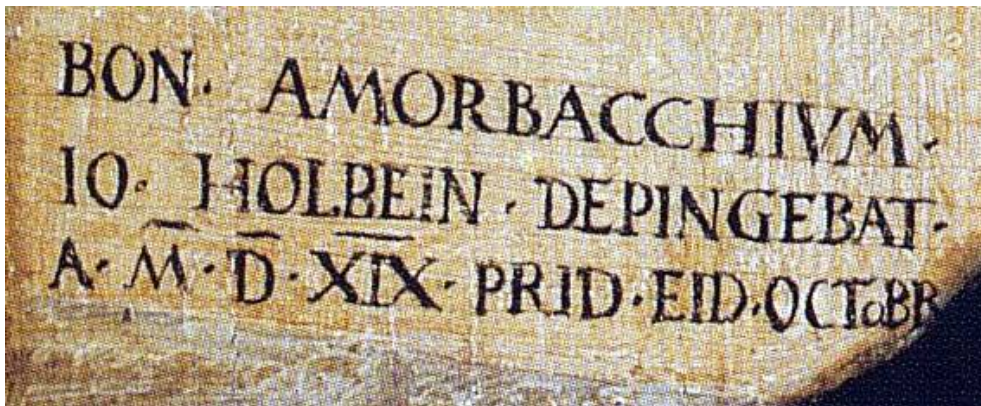 BON. AMORBACCHIVM.
IO. HOLBEIN. DEPINGEBAT.
A. M. D. XIX. PRID. EID. OCToBB